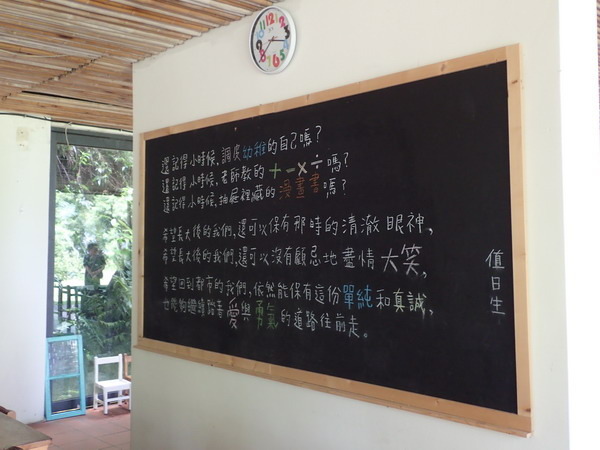 還記得小時候，調皮幼稚的自己嗎？
還記得小時候，老師教的＋－×÷嗎？
還記得小時候，抽屜裡藏的漫畫書嗎？
希望長大後的我們，還可以保有那時的清澈眼神，
希望長大後的我們，還可以沒有顧忌地盡情大笑，
希望回到都市的我們，依然能保有這份單純和真誠，
也能夠繼續踏著愛與勇氣的道路往前走。
值日生